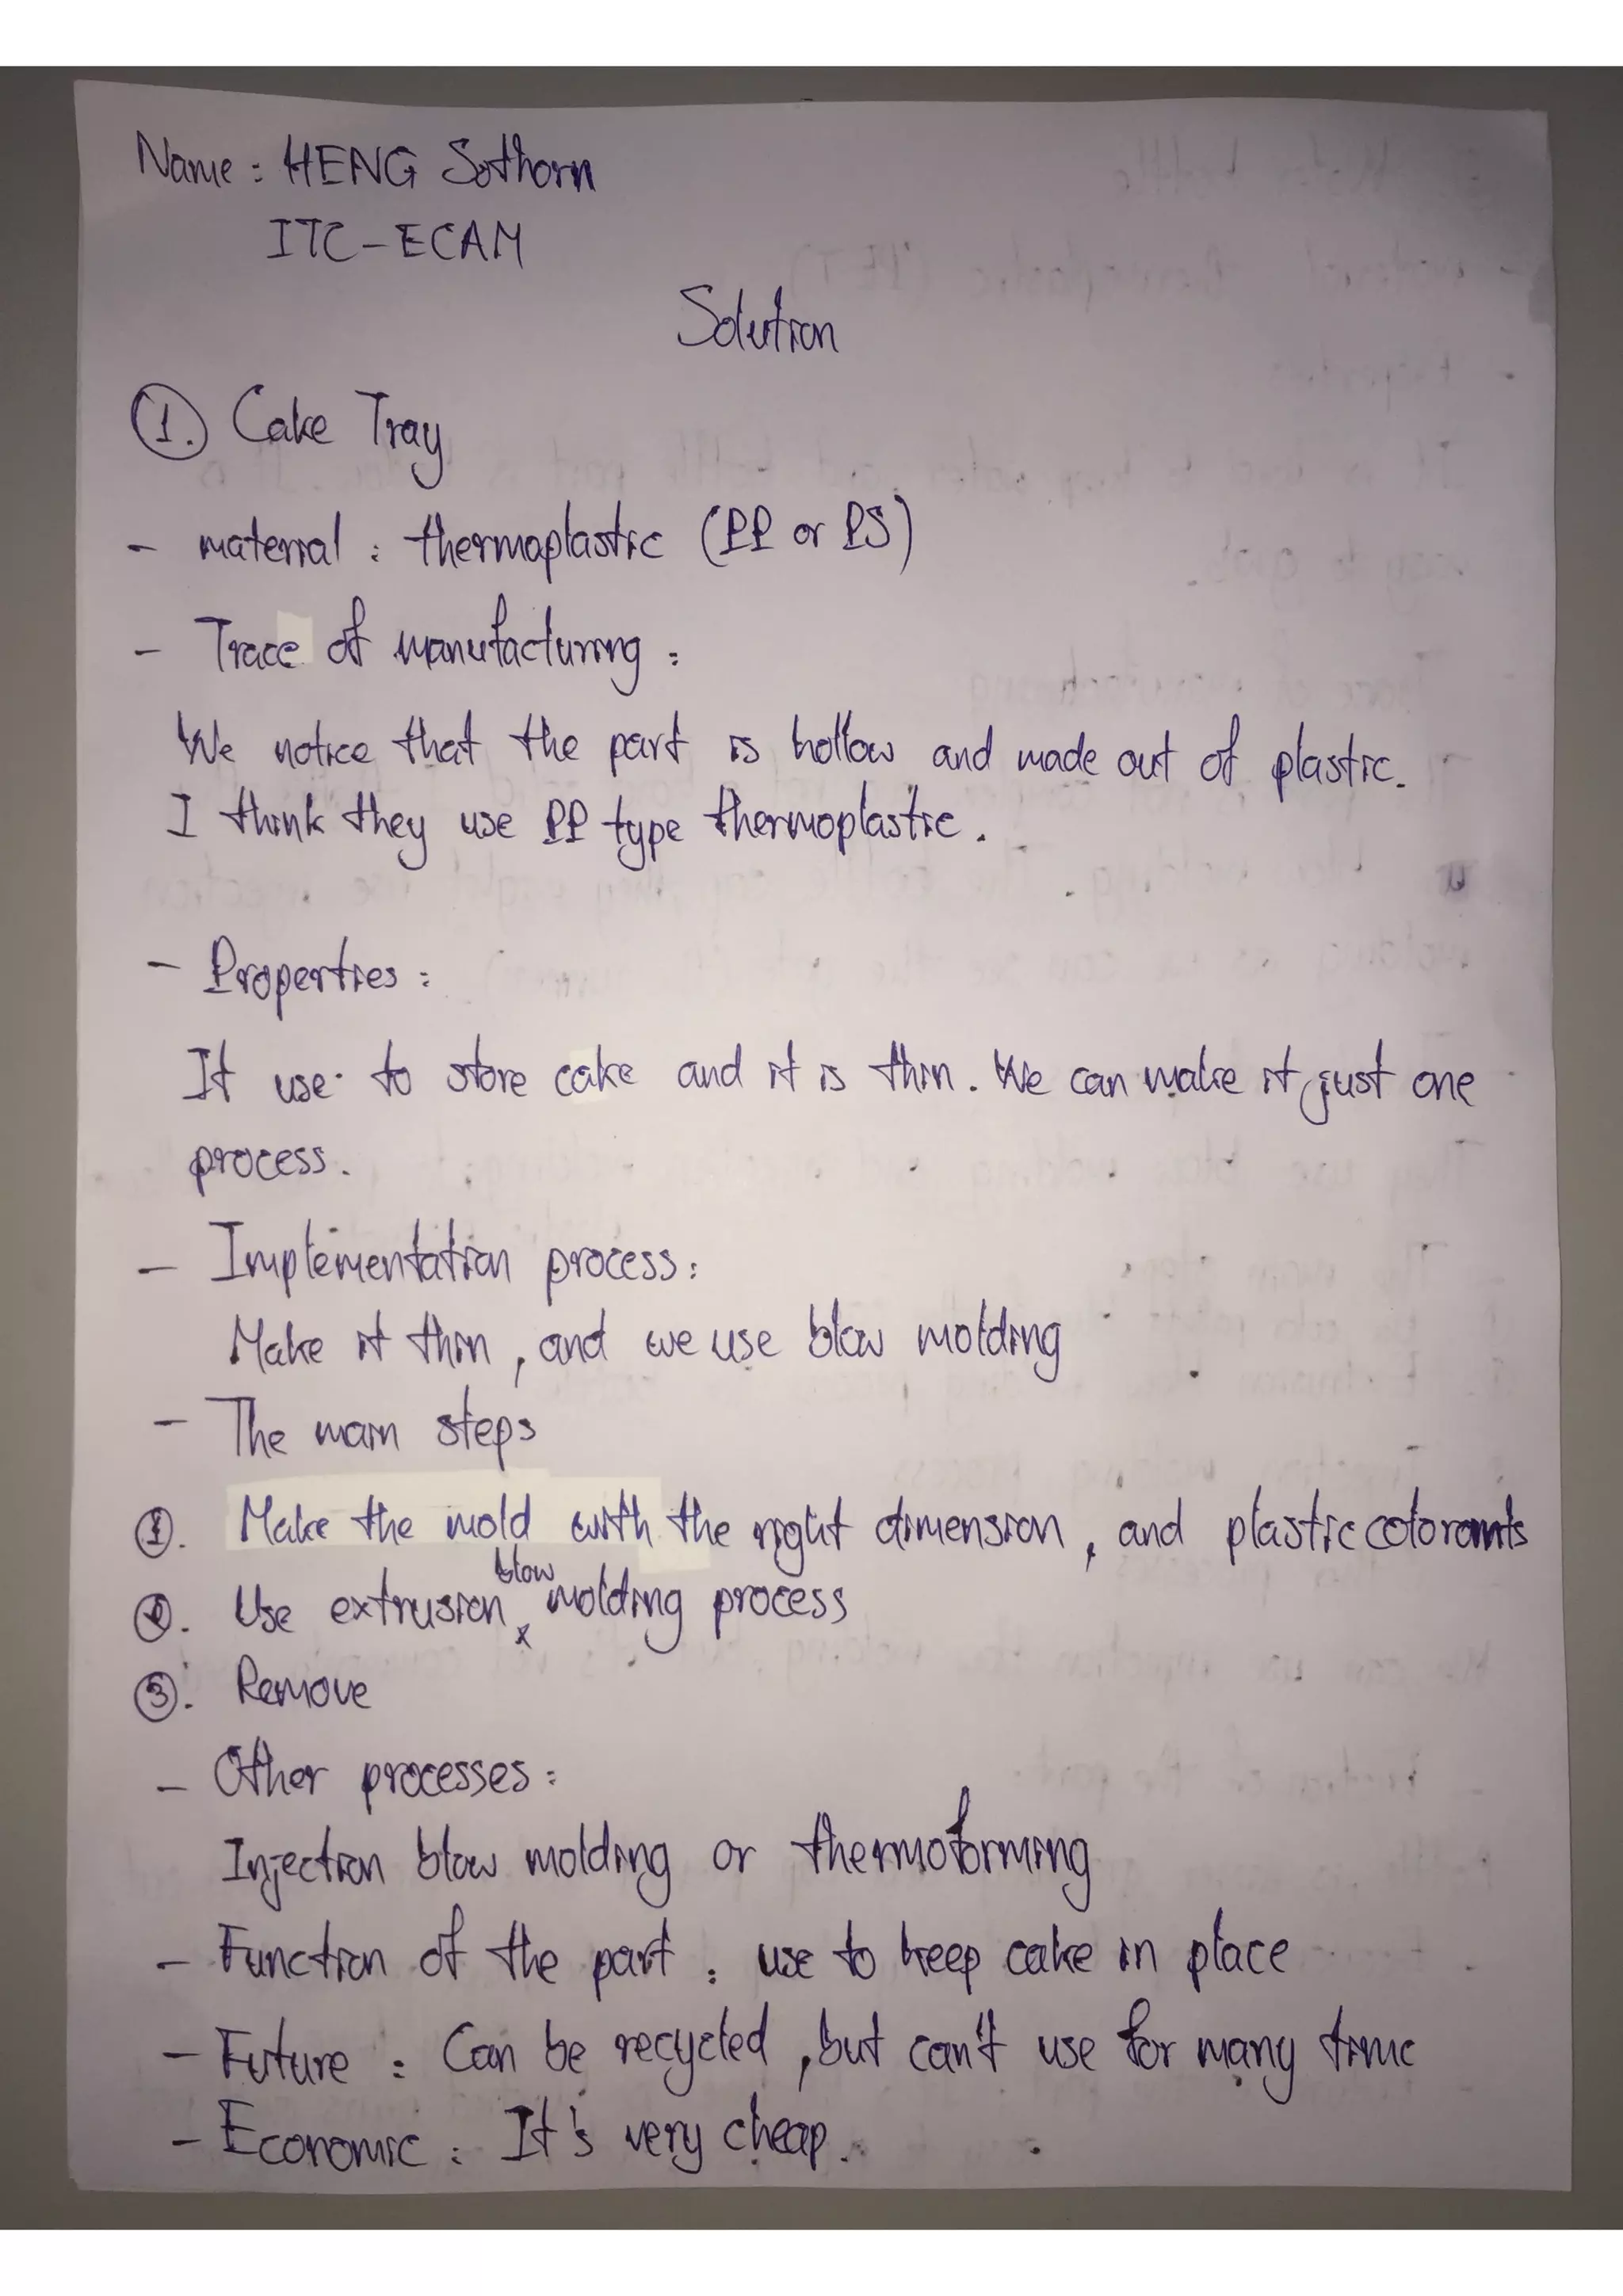 Name : HENG Sothorn
ITC-ECAM
Solution
1. Cake Tray
- material : thermoplastic (PP or PS)
- Trace of manufacturing :
We notice that the part is hollow and made out of plastic.
I think they use PP type thermoplastic.
- Properties :
It use to store cake and it is thin. We can make it just one
process.
- Implementation process :
Make it thin, and we use blow molding
- The main steps
1. Make the mold with the right dimension, and plastic colorants
2. Use extrusion blow molding process
3. Remove
- Other processes :
Injection blow molding or thermoforming
- Function of the part : use to keep cake in place
- Future : Can be recycled, but can't use for many time
- Economic : It's very cheap.